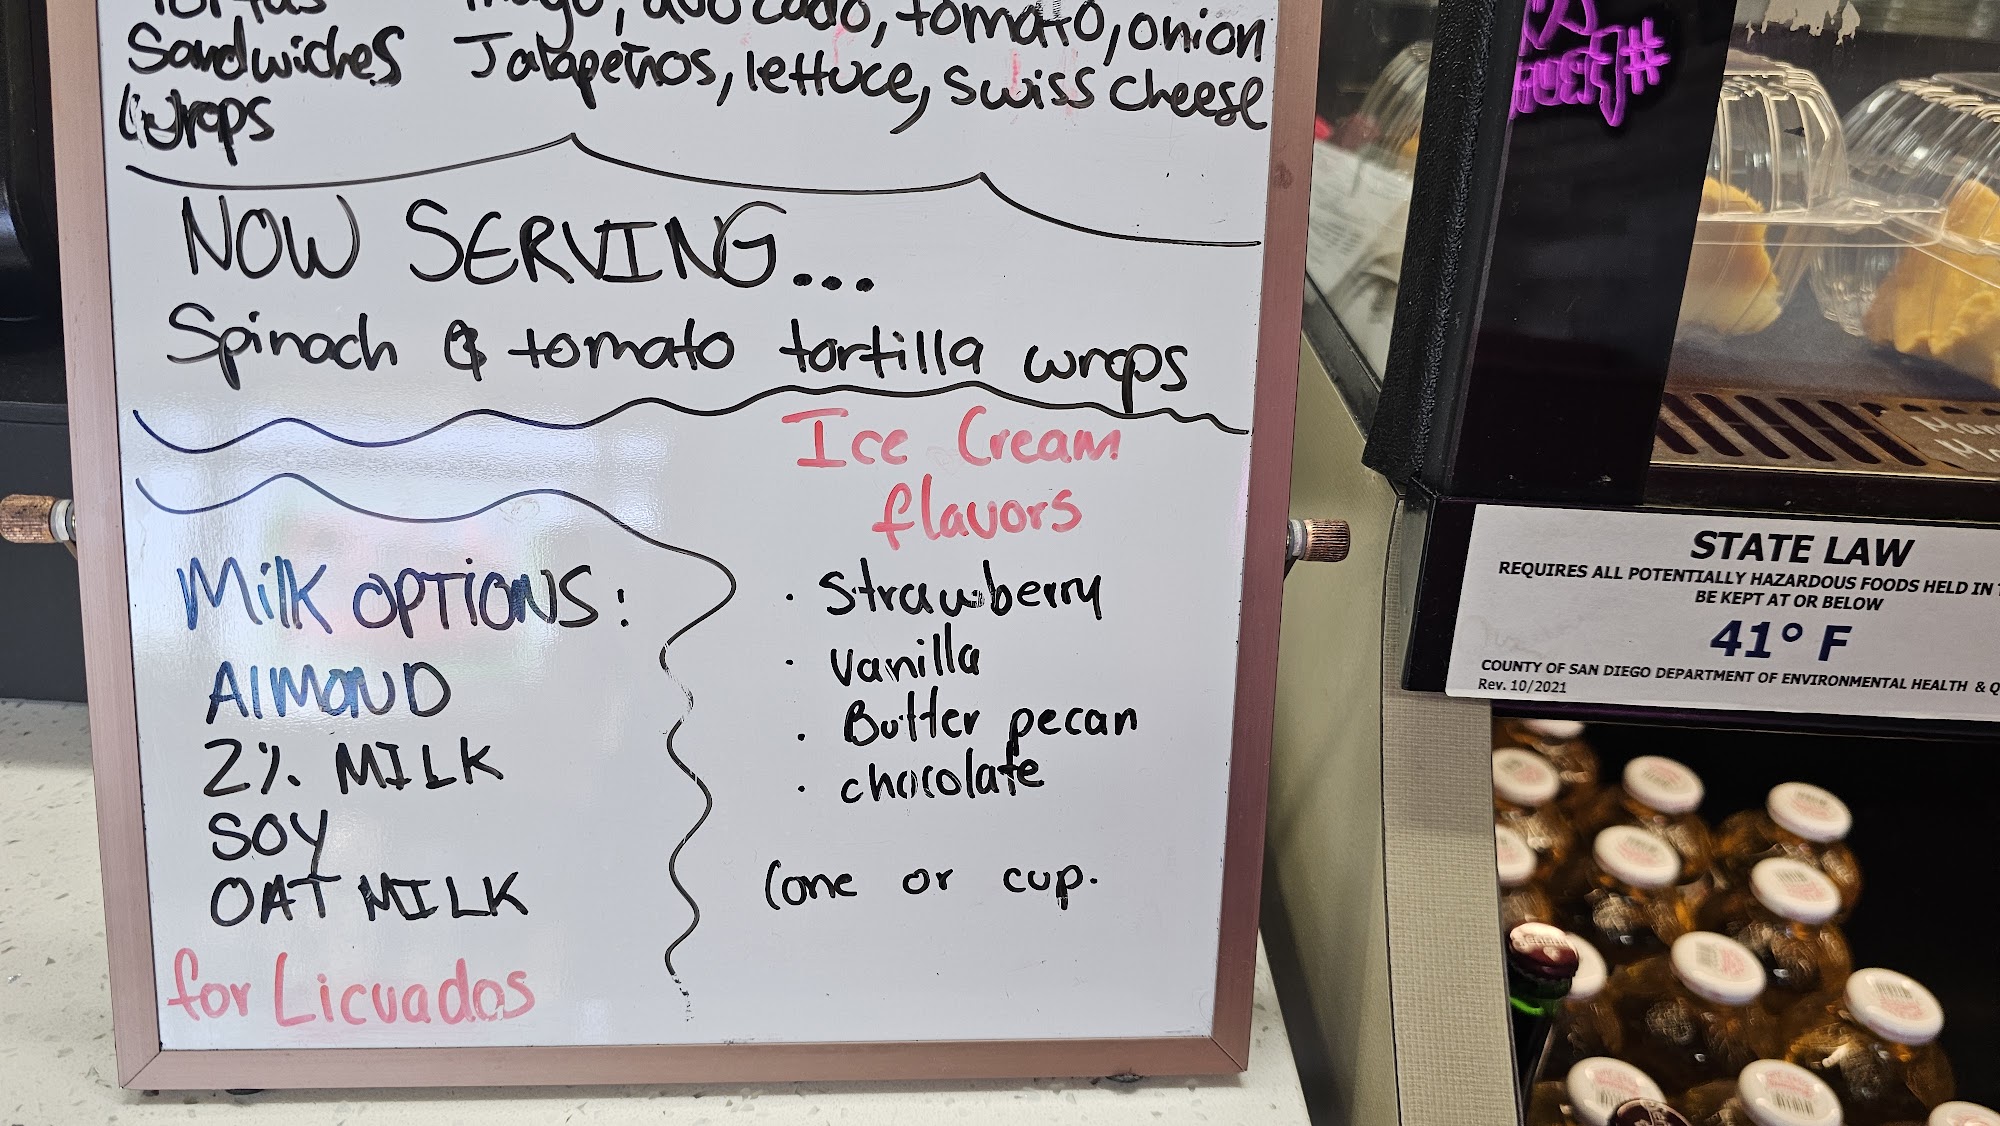 Tortas mayo, avocado, tomato, onion
Sandwiches Jalapeños, lettuce, swiss cheese
wraps
NOW SERVING...
Spinach & tomato tortilla wraps
Milk OPTIONS:
AlMOND
2% MILK
SOY
OAT MILK
for Licuados
Ice Cream
flavors
· Strawberry
· Vanilla
· Butter pecan
· chocolate
Cone or cup.
STATE LAW
REQUIRES ALL POTENTIALLY HAZARDOUS FOODS HELD IN
BE KEPT AT OR BELOW
41° F
COUNTY OF SAN DIEGO DEPARTMENT OF ENVIRONMENTAL HEALTH & Q
Rev. 10/2021